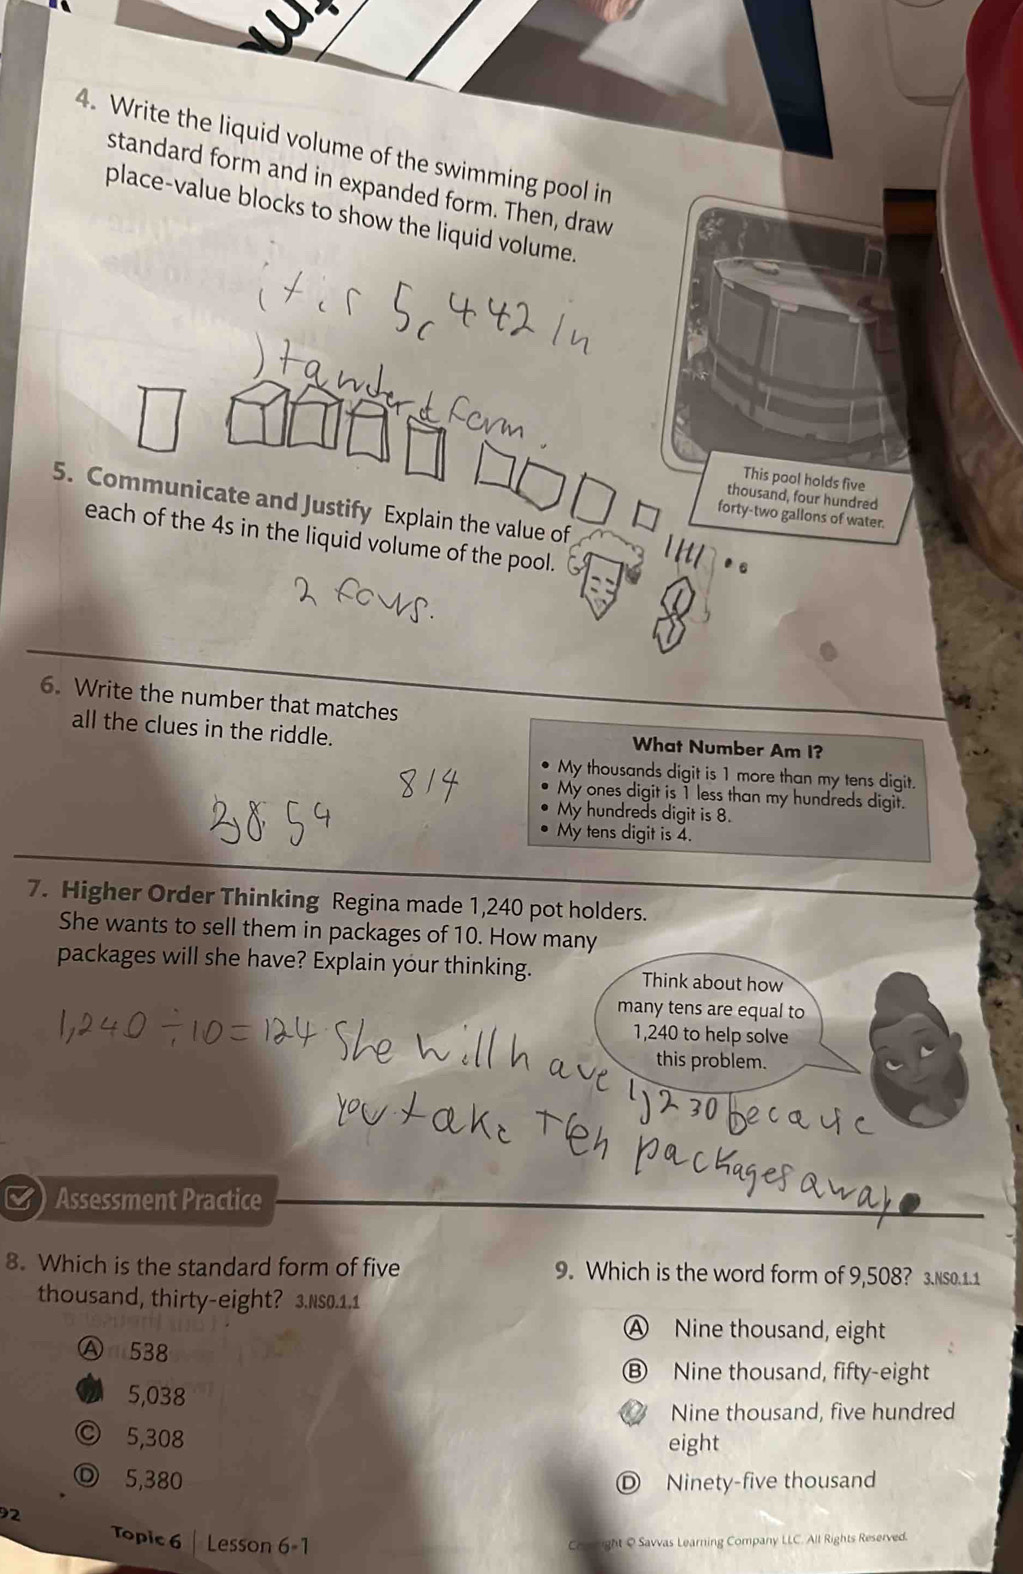 4. Write the liquid volume of the swimming pool in
standard form and in expanded form. Then, draw
place-value blocks to show the liquid volume.
it is 5,442 in
standerd form.
This pool holds five
thousand, four hundred
forty-two gallons of water.
5. Communicate and Justify Explain the value of
each of the 4s in the liquid volume of the pool.
2 fours.
6. Write the number that matches
all the clues in the riddle.
814
What Number Am I?
• My thousands digit is 1 more than my tens digit.
• My ones digit is 1 less than my hundreds digit.
• My hundreds digit is 8.
• My tens digit is 4.
7. Higher Order Thinking Regina made 1,240 pot holders.
She wants to sell them in packages of 10. How many
packages will she have? Explain your thinking.
Think about how
many tens are equal to
1,240 to help solve
this problem.
1,240 ÷ 10 = 124 She will have 1,230 becaus
you take ten packages away
Assessment Practice
8. Which is the standard form of five
thousand, thirty-eight? 3.NSO.1.1
Ⓐ 538
5,038
Ⓒ 5,308
Ⓓ 5,380
9. Which is the word form of 9,508? 3.NSO.1.1
Ⓐ Nine thousand, eight
Ⓑ Nine thousand, fifty-eight
Nine thousand, five hundred
eight
Ⓓ Ninety-five thousand
92
Topic 6 | Lesson 6-1
© Savvas Learning Company LLC. All Rights Reserved.